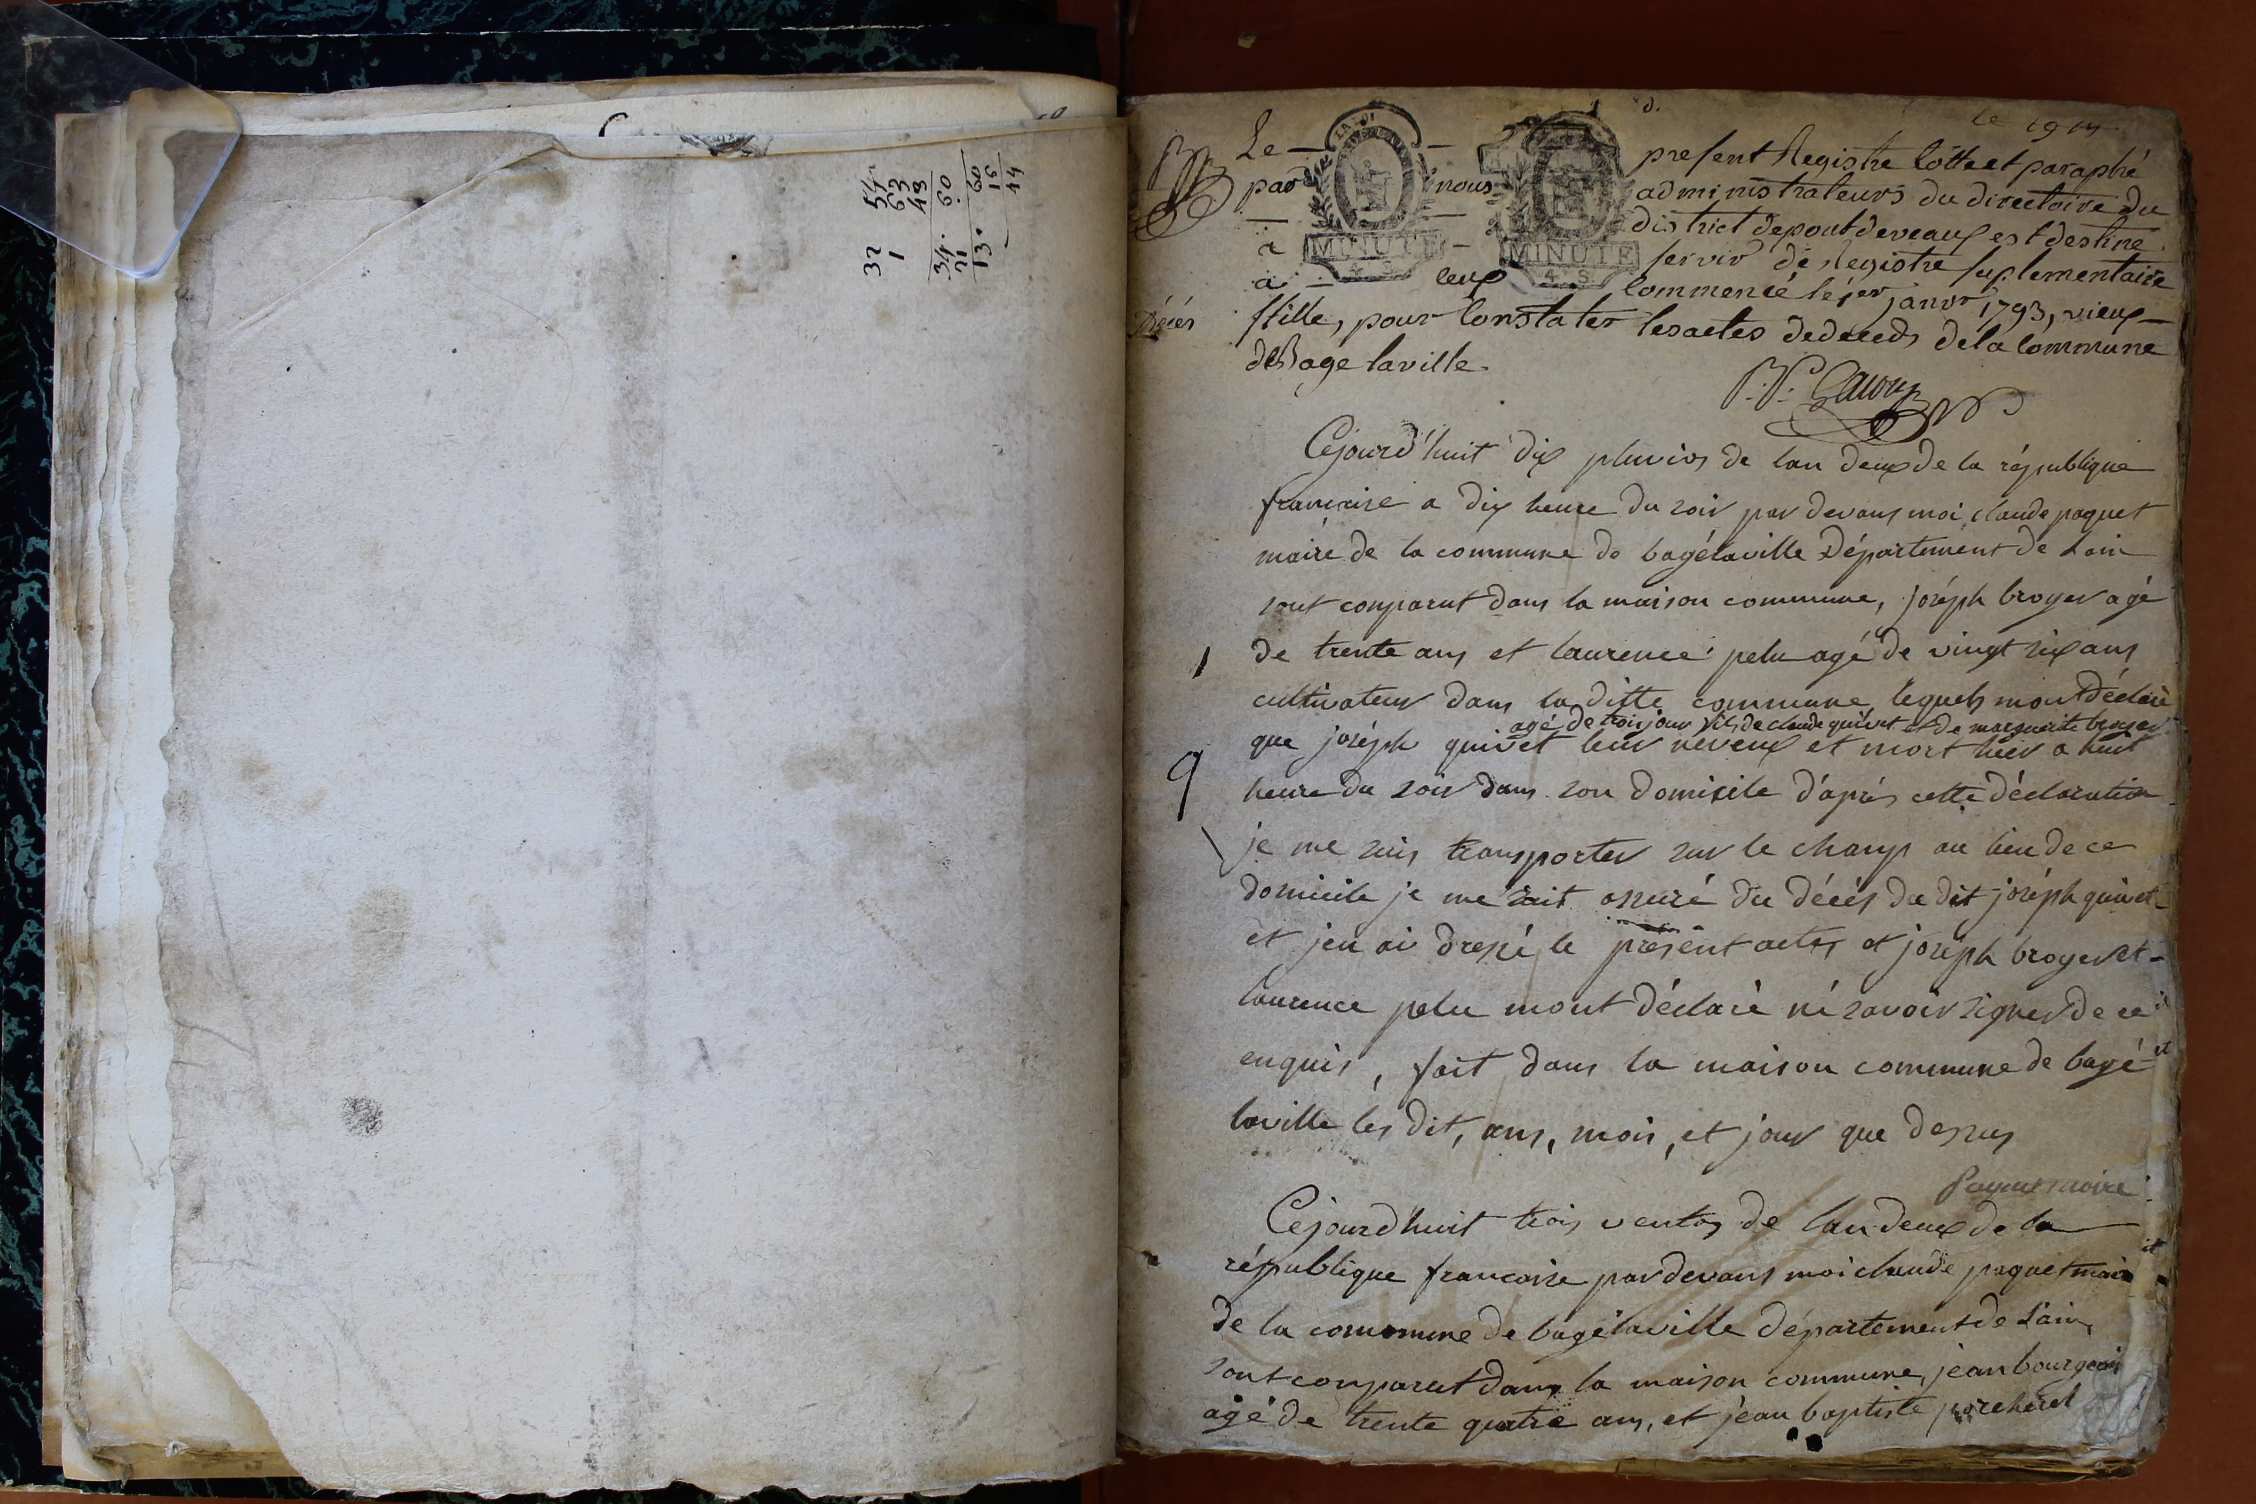 32 54
1 67
63
48
34. 60
21
13. 60
15
44
le 19
Le present Registre Cotté et paraphé
par nous administrateurs du directoire du
district depontdevaux est destiné
à servir de Registre suplementaire
à ceux commencé le 1er janvr 1793, vieux
stille, pour Constater les actes dedeceds dela Commune
deBage laville.
Décés
MINUTE
4. S.
MINUTE
4. S.
Cejourd'huit dix pluvios de lan deux de la république
francaise a dix heure du soir par devans moi claude paquet
maire de la commune de bagélaville Département de Lain
sont conparut dans la maison commune, joséph broyer agé
1
de trente ans et laurence pelu agé de vingt six ans
cultivateur dans la ditte commune lequels mont déclaré
agé de trois jour fils de claude quivet et de marguerite broyer
que joséph quivet leur neveux et mort hier a huit
9
heure du soir dans son domicile d'aprés cette déclaration
je me suis transporter sur le champ au lieu de ce
domicile je me suit assuré du décés du dit joséph quivet
et jen ai dressé le présent actes et joséph broyer et
laurence pelu mont déclaré né savoir signer de ce
enquis, fait dans la maison commune de bagé
laville les dit, ans, mois, et jour que dessus
Paquet maire
Cejourd'huit trois ventos de lan deux de la
république francaise pardevans moi claude paquet maire
de la commune de bagélaville département de Lain,
sont conparut dans la maison commune, jean bourgeois
agé de trente quatre ans, et jéan baptiste